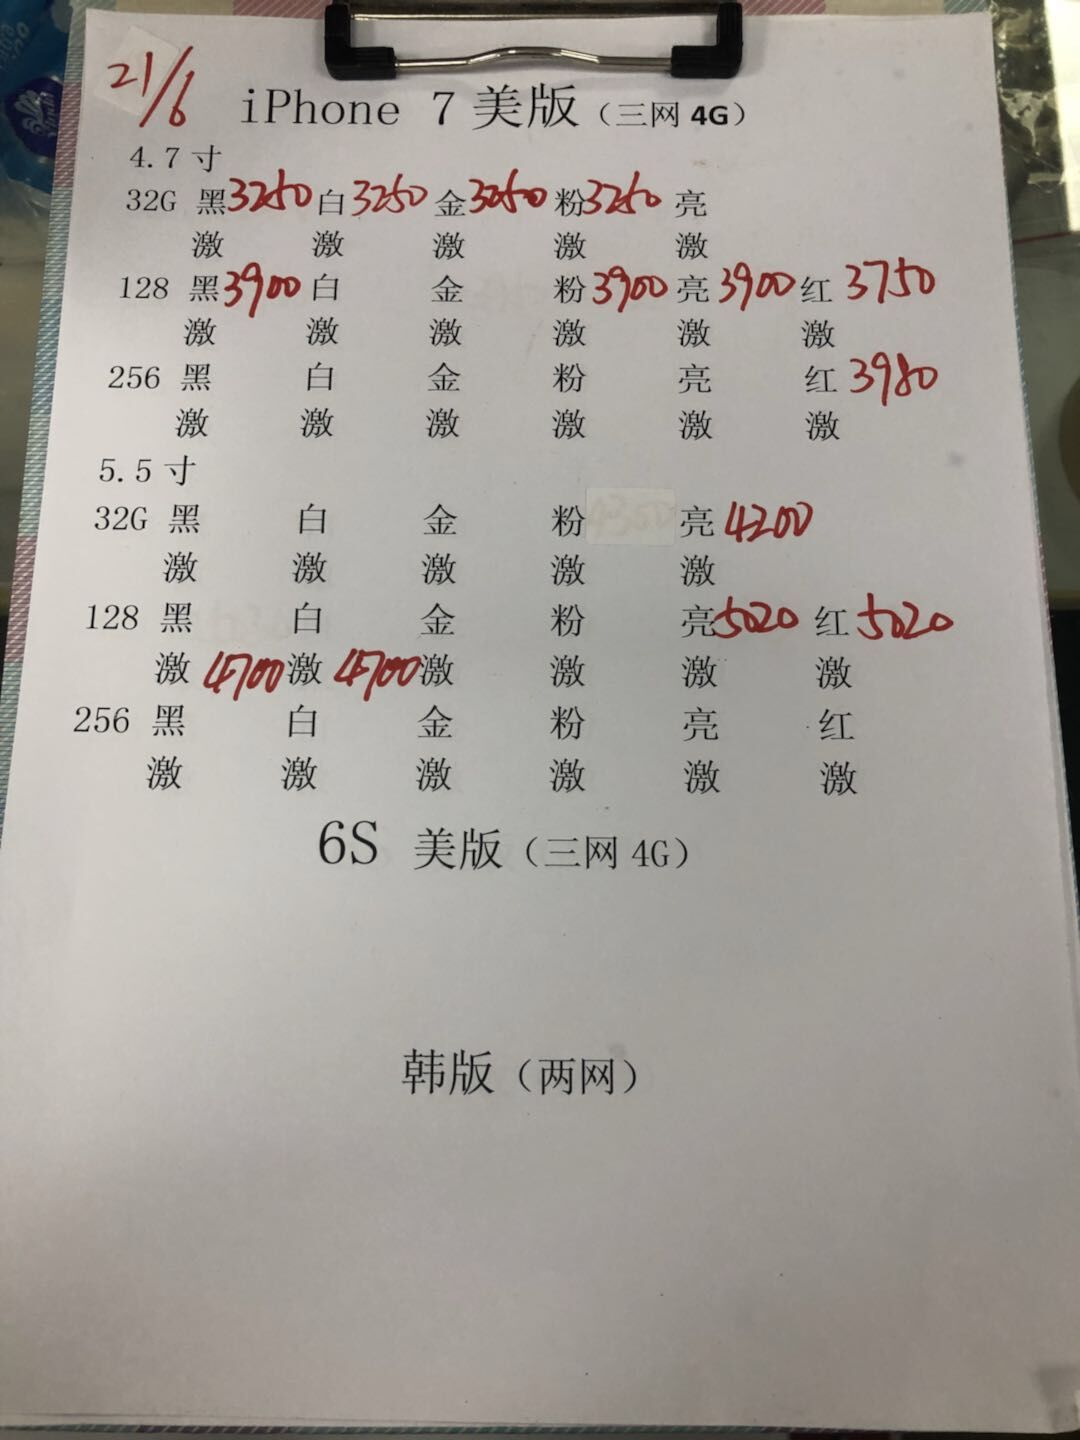 21/6
iPhone 7 美版（三网 4G）
4.7 寸
32G 黑 3250 白 3250 金 3250 粉 3250 亮
激 激 激 激 激
128 黑 3900 白 金 粉 3900 亮 3900 红 3750
激 激 激 激 激 激
256 黑 白 金 粉 亮 红 3980
激 激 激 激 激 激
5.5 寸
32G 黑 白 金 粉 亮 4200
激 激 激 激 激
128 黑 白 金 粉 亮 5020 红 5020
激 4700 激 4700 激 激 激 激
256 黑 白 金 粉 亮 红
激 激 激 激 激 激
6S 美版（三网 4G）
韩版（两网）